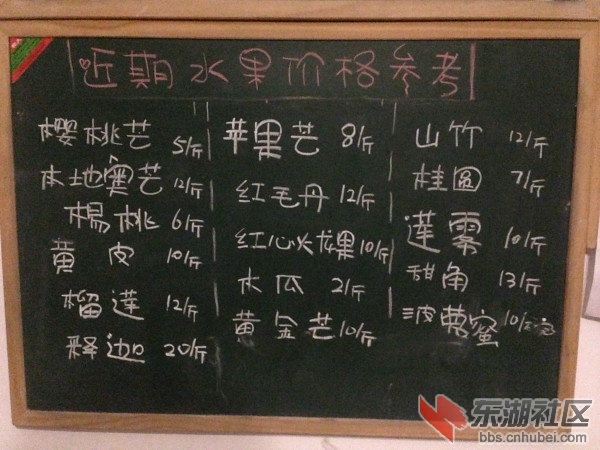 近期水果价格参考
樱桃芒 5/斤
本地奥芒 12/斤
楊桃 6/斤
黄皮 10/斤
榴蓮 12/斤
释迦 20/斤
苹果芒 8/斤
红毛丹 12/斤
红心火龙果 10/斤
木瓜 2/斤
黄金芒 10/斤
山竹 12/斤
桂圆 7/斤
蓮雾 10/斤
甜角 13/斤
菠萝蜜 10/
东湖社区
bbs.cnhubei.com